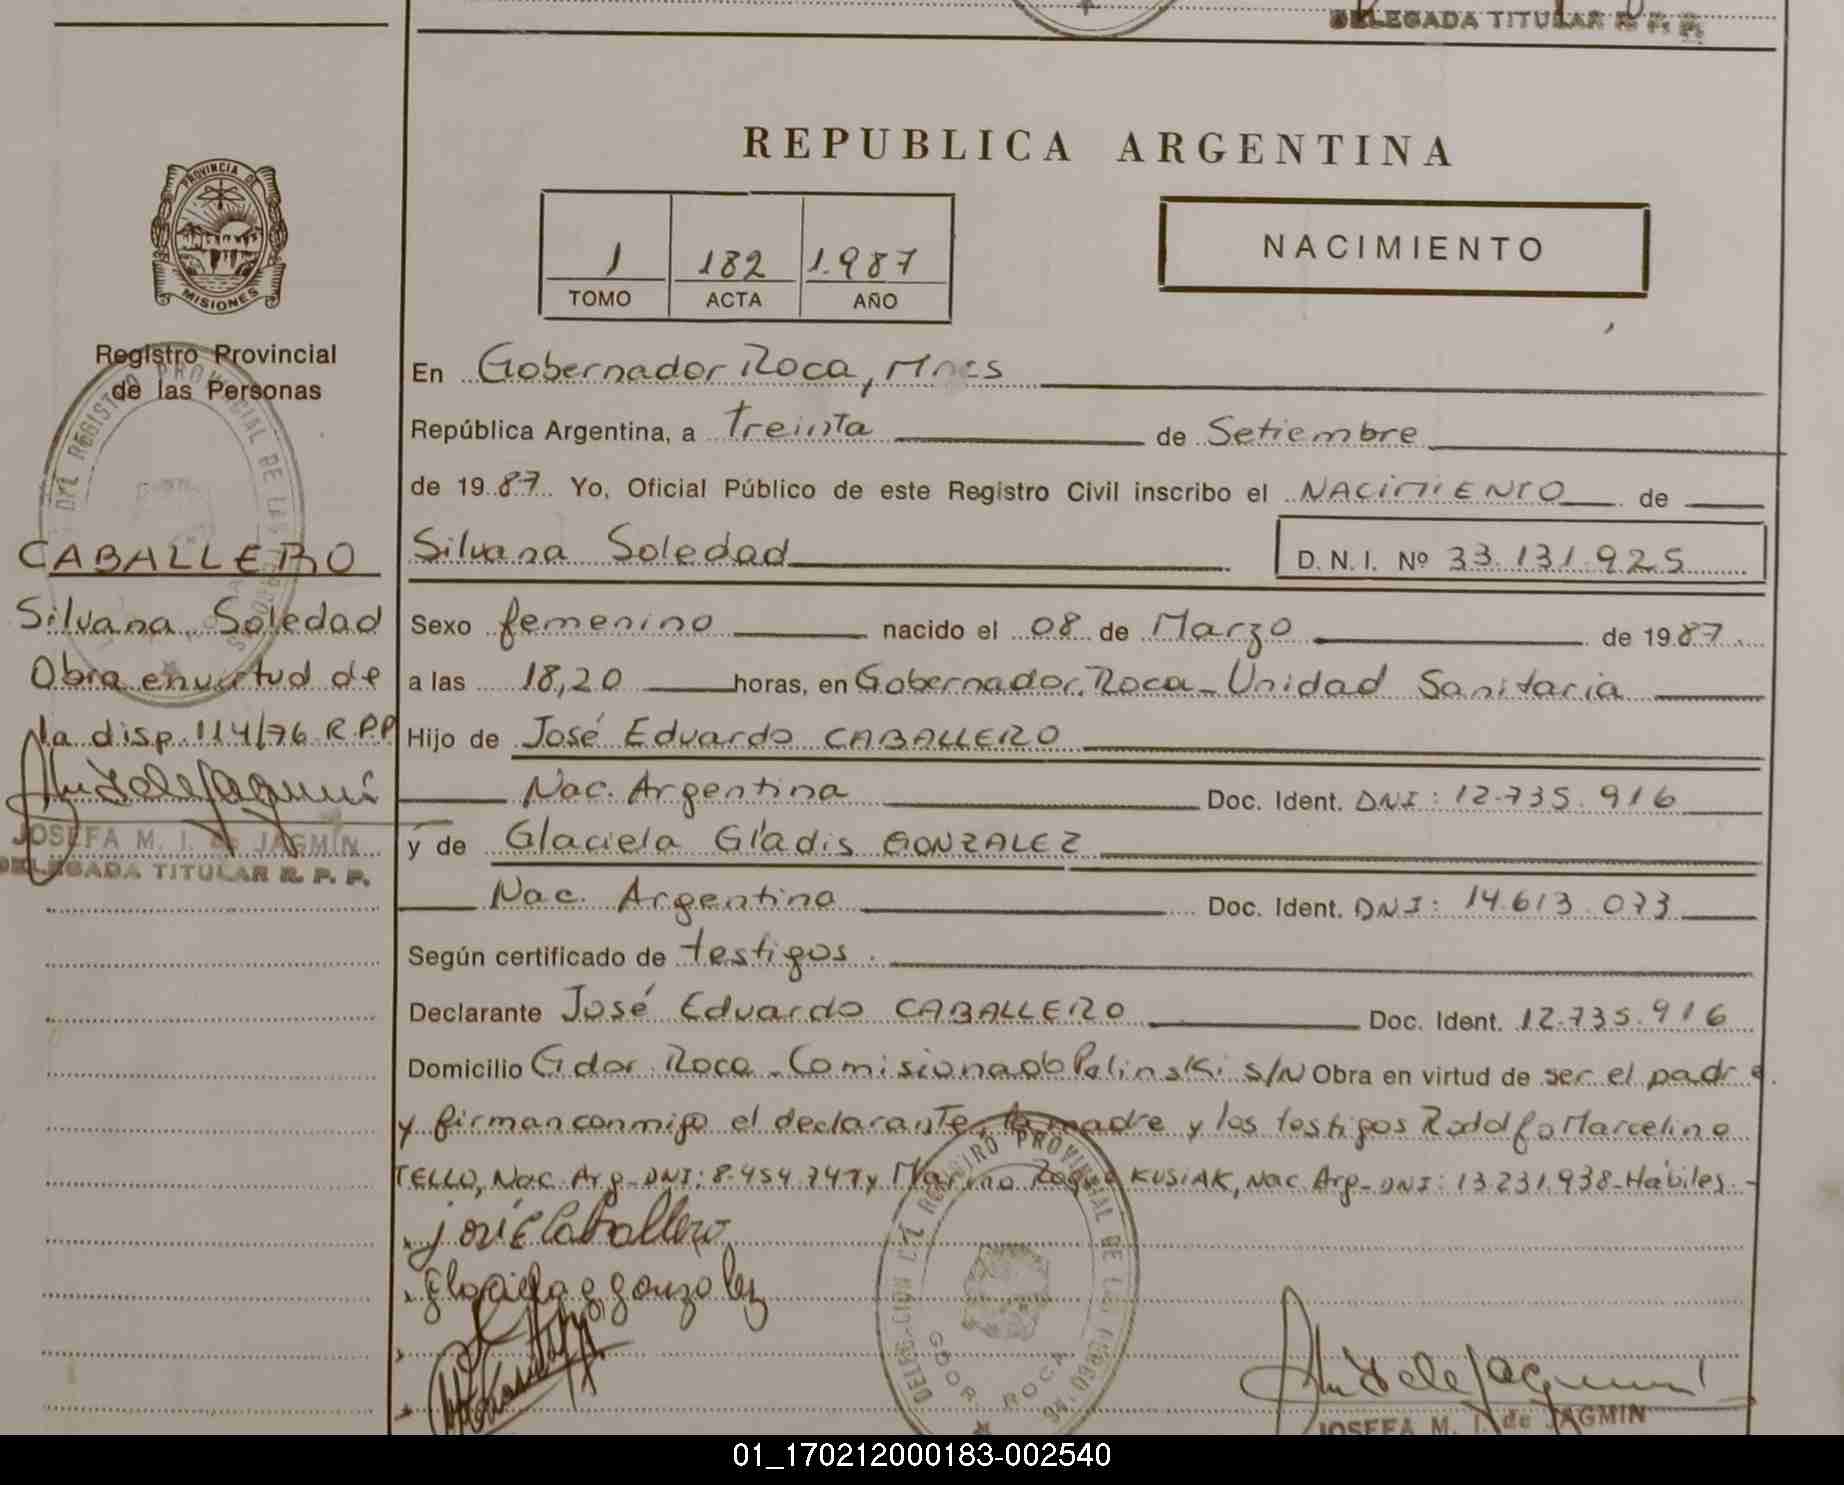 DELEGADA TITULAR R. P. P.
REPUBLICA ARGENTINA
PROVINCIA DE
MISIONES
Registro Provincial
de las Personas
1 182 1.987
TOMO ACTA AÑO
NACIMIENTO
CABALLERO
Silvana Soledad
Obra en virtud de
la disp. 114/76 R.P.P
JOSEFA M. I. de JAGMIN
DELEGADA TITULAR R. P. P.
En Gobernador Roca, Mnes
República Argentina, a treinta de Setiembre
de 19 87 Yo, Oficial Público de este Registro Civil inscribo el NACIMIENTO de
Silvana Soledad D. N. I. Nº 33.131.925
Sexo femenino nacido el 08 de Marzo de 19 87
a las 18,20 horas, en Gobernador Roca - Unidad Sanitaria
Hijo de José Eduardo CABALLERO
Nac. Argentina Doc. Ident. DNI: 12.735.916
y de Glaciela Gladis GONZALEZ
Nac. Argentina Doc. Ident. DNI: 14.613.073
Según certificado de testigos.
Declarante José Eduardo CABALLERO Doc. Ident. 12.735.916
Domicilio Gdor. Roca - Comisionado Palinski s/N Obra en virtud de ser el padre
y firman conmigo el declarante, la madre y los testigos Rodolfo Marcelino
TELLO, Nac. Arg - DNI: 8.454.747 y Marino Roque KUSIAK, Nac. Arg - DNI: 13.231.938 - Hábiles. -
josé E Caballero
glaciela g gonzalez
GDOR. ROCA
JOSEFA M. I. de JAGMIN
01_170212000183-002540